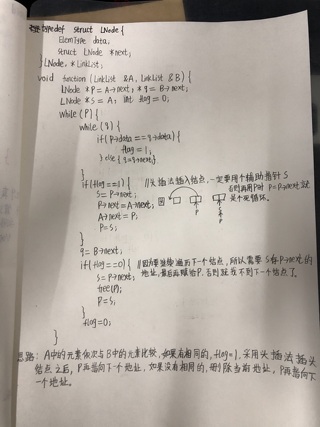 typedef struct LNode{
ElemType data;
struct LNode *next;
}LNode, *LinkList;
void function (LinkList &A, LinkList &B){
LNode *P = A->next; *q = B->next;
LNode *S = A; int flag = 0;
while(P){
while(q){
if(P->data == q->data){
flag = 1;
}else{ q=q->next}
}
if(flag==1){ //头插法插入结点,一定要用个辅助指针S
S = P->next; 否则再用P时 P=P->next 就
P->next = A->next; 是个死循环。
A->next = P;
P=S;
}
q = B->next;
if(flag==0){ //因为要继续遍历下一个结点,所以需要S存P->next的
S = P->next; 地址,最后再赋给P,否则就找不到下一个结点了。
free(P);
P=S;
}
flag=0;
}
思路:A中的元素依次与B中的元素比较,如果有相同的,flag=1,采用头插法插头
结点之后,P再指向下一个地址,如果没有相同的,删除当前地址,P再指向下
一个地址。